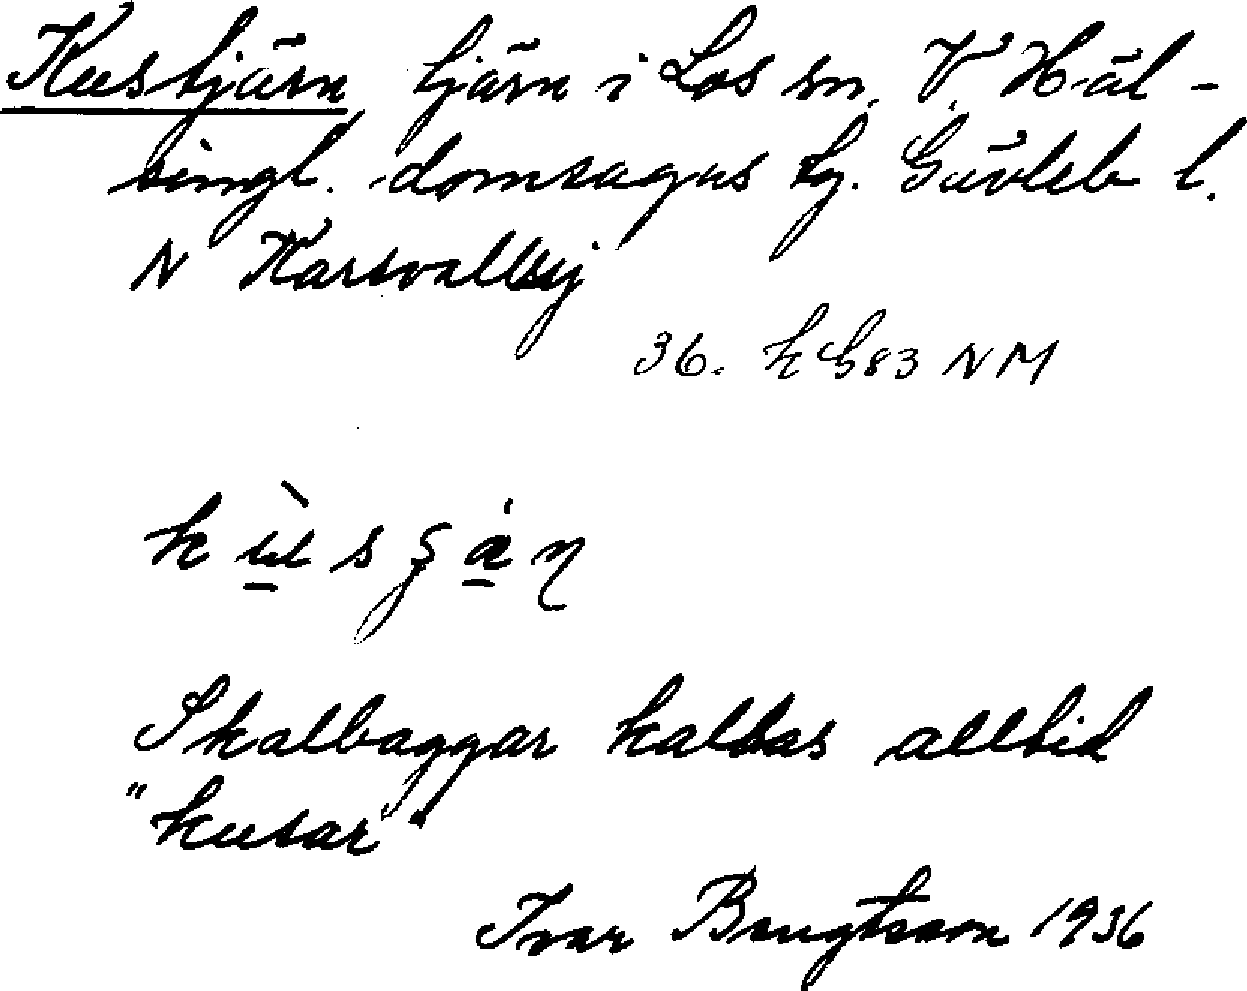 Kustjärn tjärn i Los sn. V. Häl-
singl. domsagas tg. Gävleb l.
N Karsvallsj
36. h G83 NM
Skalbaggar kallas alltid
"kusar"
Ivar Bengtsson 1936